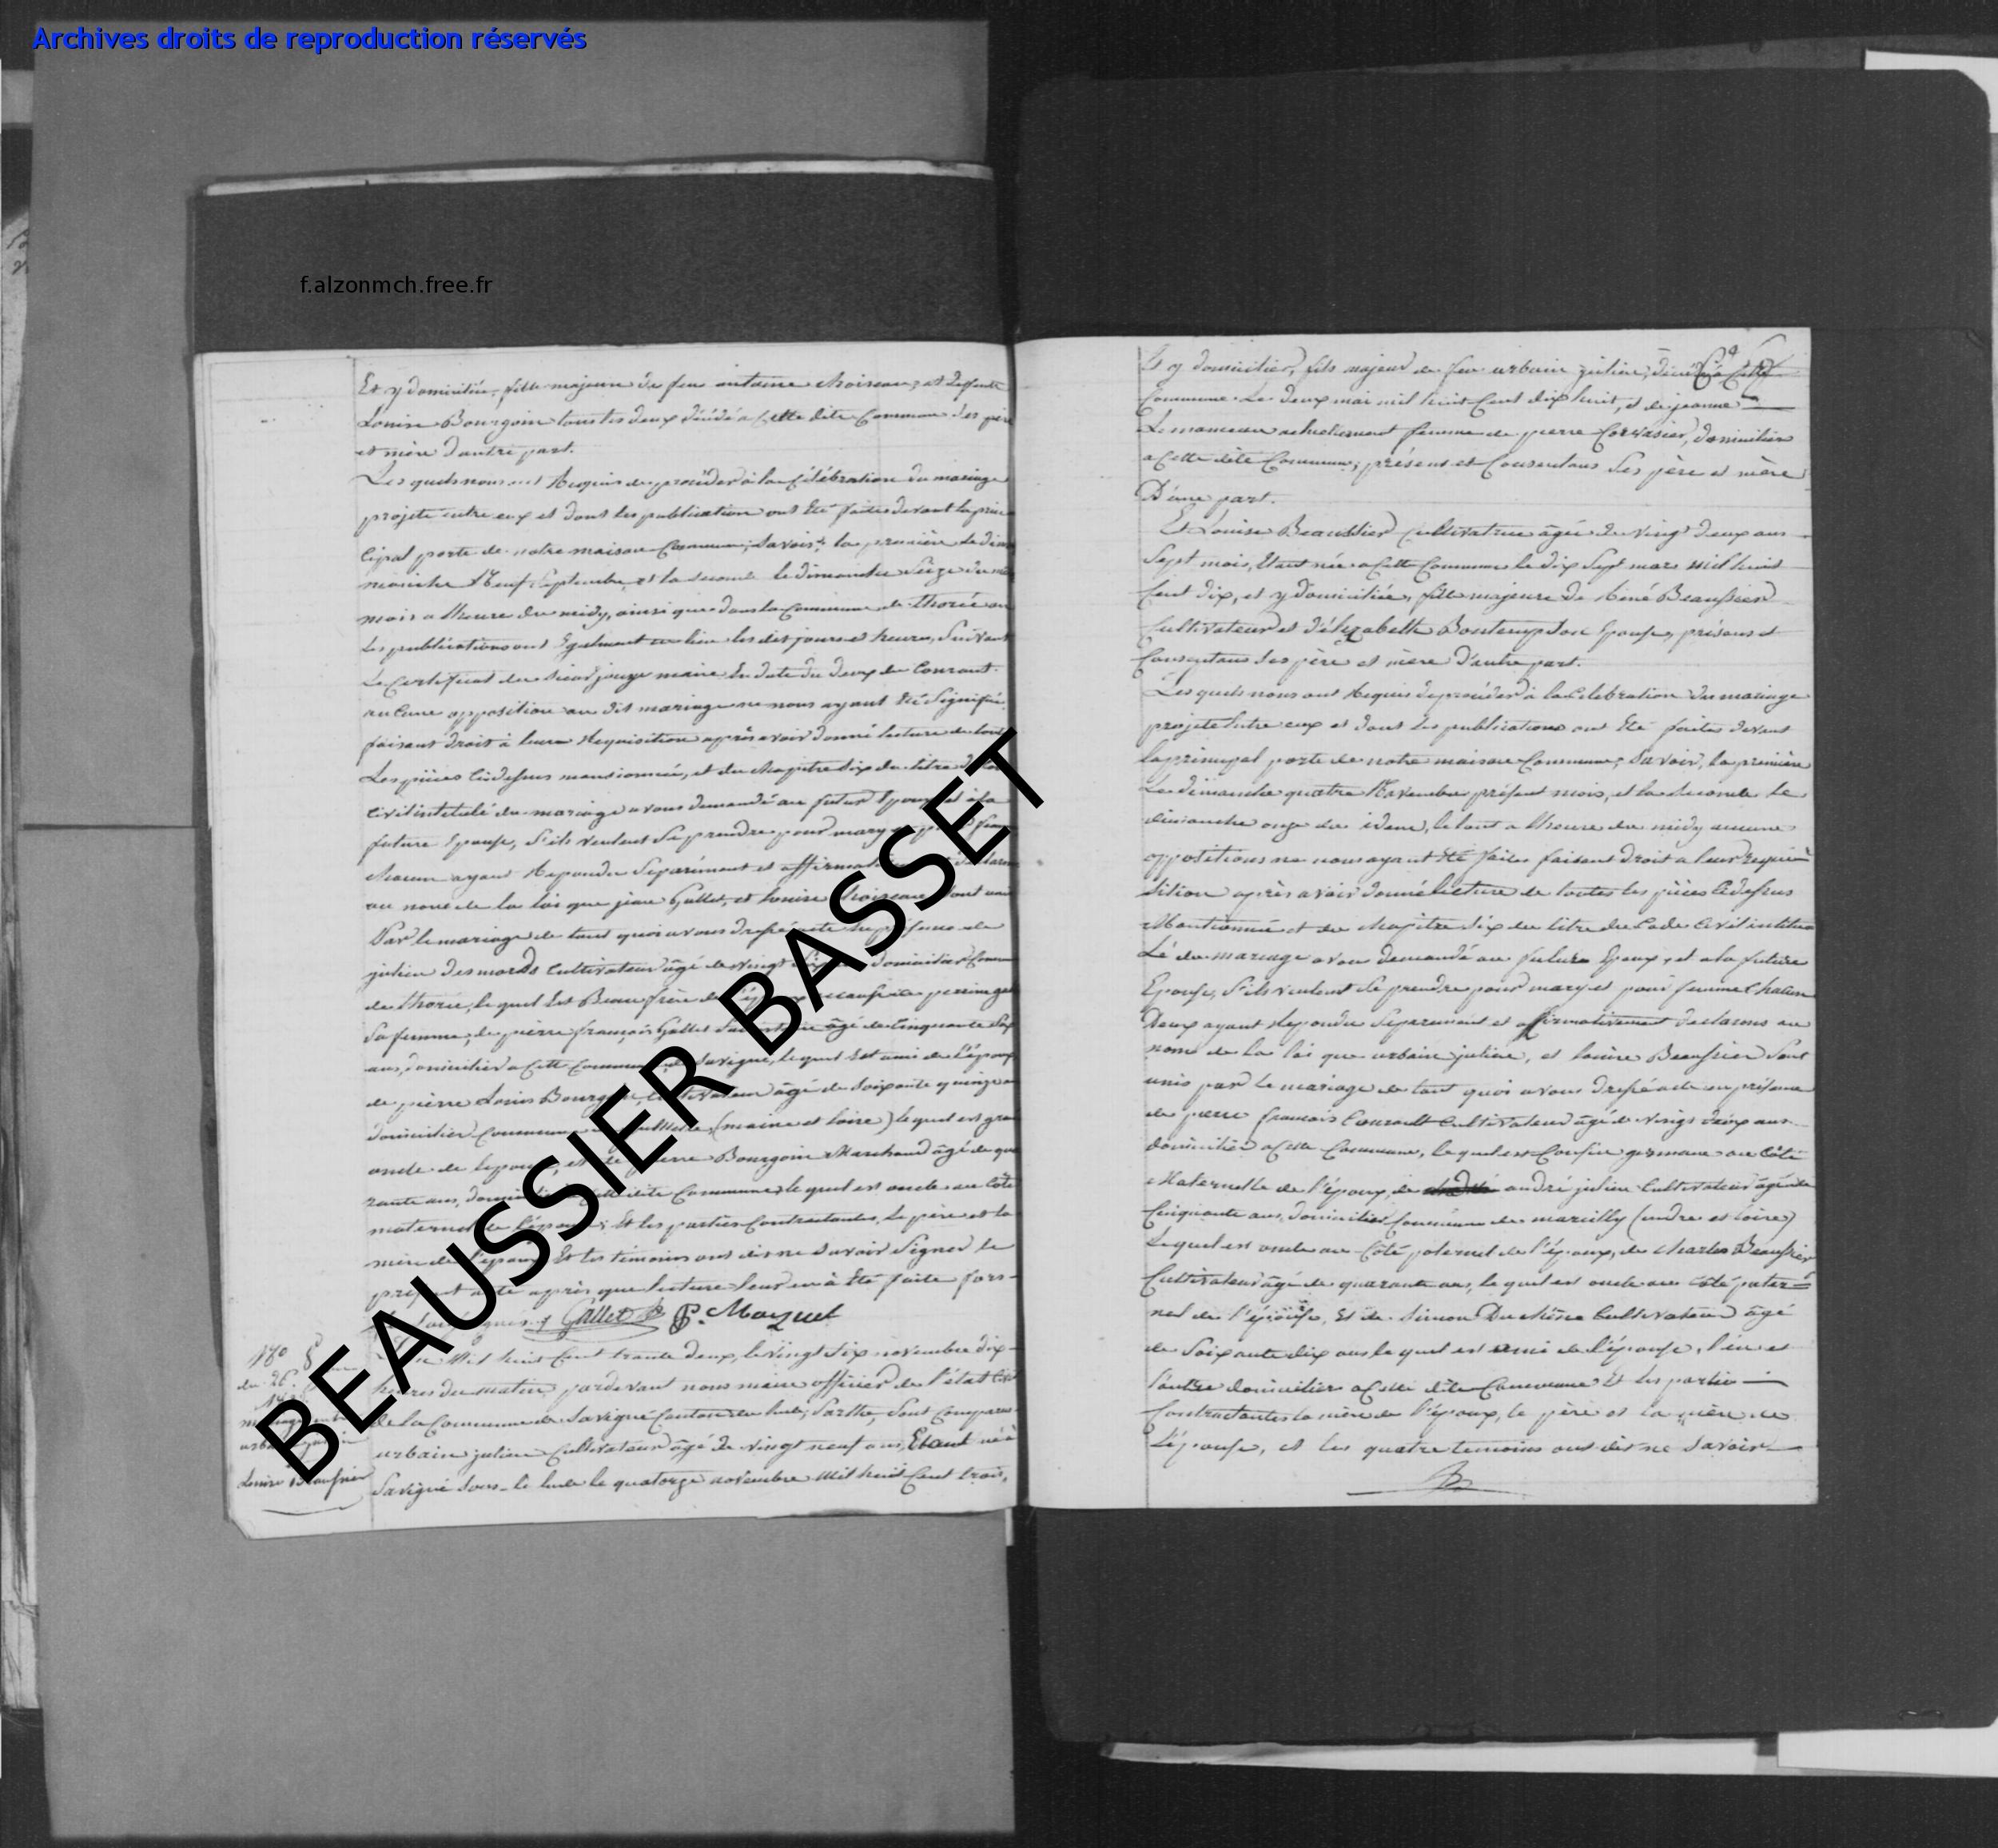 Archives droits de reproduction réservés
f.alzonmch.free.fr
BEAUSSIER BASSET
Et y domiciliée, fille majeure de feu antoine choiseau, et deffunte
Louise Bourgoin tous les deux décédé a Cette dite Commune des père
et mère d'autre part.
Les quels nous ont Requis de procéder à la Célébration du mariage
projeté entre eux et dont les publication ont Eté faites devant la prin
cipal porte de notre maison Commune, Savoir; la première le dim
manche Neuf Septembre, et la seconde le dimanche Seize du
mois a lheure du midy, ainsi que dans la Commune de thorée ou
Les publications ont Egalment eu lieu les dits jours et heures, Suivant
Le Certificat du Sieur maire En date du deux du Courant.
aucune opposition au dit mariage ne nous ayant Eté Signifiée,
faisant droit à leur Réquisition après avoir donné lecture de tout
Les pièces Cidessus mensionnée, et du chapitre Six du titre du
Civil intitulé du mariage avons demandé au futur Epoux et à la
future Epouse, S'ils veulent Se prendre pour mary et pour fem
chacun ayant Repondu Separément et affirmat déclarons
au nom de la loi que jean Gallet, et Louise Choiseau Sont unis
Par le mariage de tout quoi avons dressé acte en présence de
julien des mords Cultivateur âgé de Vingt domicilier Commune
de thorée, le quel Est Beau frère de
Sa femme, de pierre françois Gallet âgé de Cinquante Six
ans, domicilier a Cette Commune de Savigné, le quel Est ami de l'époux
de pierre Louis Bourgoin, Cultivateur âgé de Soixante quinze an
domicilier Commune (maine et loire) le quel est gran
oncle de lepouse, et de pierre Bourgoin Marchand âgé de qua
rante ans, domicilier Cette dite Commune, le quel est oncle au Côté
maternel de l'épouse; Et les parties Contractantes, le père et la
mère de l'époux Et les témoins ont dit ne Savoir Signer le
présent acte après que lecture leur en à Eté faite fors
Gallet P. Mazuel
180
du 26
mariage entre
urbain julien
Louise Beaussier
L'an Mil huit Cent trante deux, le vingt Six novembre dix
heures du matin, pardevant nous maire officier de l'état Civil
de la Commune de Savigné Canton du lude, Sarthe, Sont Comparu
urbain julien Cultivateur âgé de vingt neuf ans, Etant né à
Savigné Sous le lude le quatorze novembre Mil huit Cent trois,
Et y domicilier, fils majeur de feu urbain julien, décédé a Cette
Commune Le deux mai mil huit Cent dix huit, et de jeanne
Lemanceau actuelement femme de pierre Corvasier, domicilier
a Cette dite Commune, présent et Consentans Ses père et mère
D'une part.
Et Louise Beaussier Cultivatrice âgée de vingt deux ans
Sept mois, Etant née a Cette Commune le dix Sept mars mil huit
Cent dix, et y domiciliée, fille majeure de Réné Beaussier
Cultivateur et d'élizabeth Bontemps Son Epouse, présent et
Consentans Ses père et mère D'autre part.
Les quels nous ont Requis de procéder à la Célébration du mariage
projeté Entre eux et dont les publications ont Eté faites devant
la principal porte de notre maison Commune, Savoir, la première
Le dimanche quatre Novembre présent mois, et la Seconde le
dimanche onze du idem, le tout a lheure du midy aucune
oppositions ne nous ayant Eté faites faisant droit a leur requi
sition après avoir donné lecture de toutes les pièces Cidessus
Mentionnée et du chapitre Six du titre du Code Civil intitu
Lé du mariage avon demandé au future Epoux, et a la future
Epouse, S'ils veulent Se prendre pour mary et pour femme Chacun
Deux ayant Repondu Séparément et affirmativement declarons au
nom de la loi que urbain julien, et louise Beaussier Sont
unis par le mariage de tout quoi avons dressé acte en présence
de pierre françois Cultivateur âgé de Vingt deux ans
domicilier a Cette Commune, le quel est Cousin germain au Côté
Maternelle de l'époux, de andré julien Cultivateur âgé de
Cinquante ans, domicilier Commune de marcilly (indre et loire)
Lequel est oncle au Côté paternel de l'époux, de charles Beaussier
Cultivateur âgé de quarante ans, le quel est oncle au Côté pater=
nel de l'épouse, Et de Simon Duchêne Cultivateur âgé
de Soixante dix ans le quel est ami de l'épouse, l'un et
l'autre domicilier a Cette dite Commune Et les partie
Contractantes la mère de l'époux, le père et la mère de
L'épouse, et les quatre temoins ont dit ne Savoir